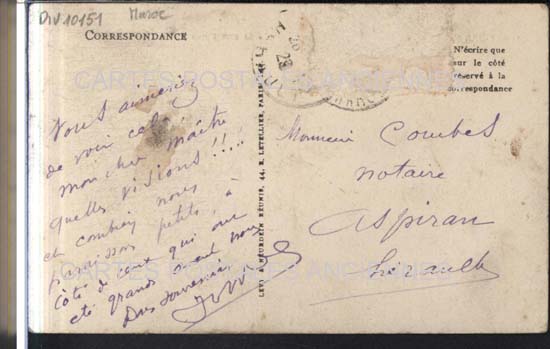 DIV10151
Maroc
CORRESPONDANCE
N'écrire que
sur le côté
réservé à la
correspondance
CARTES POSTALES ANCIENNES
Vous aimeriez
de voir cela
mon cher maître
quelles visions!!!..
et combien nous
paraissons petits, à
côté de ceux qui ont
été grands avant nous
Bons souvenirs
LEVY & NEURDEIN RÉUNIS, 44, R. LETELLIER, PARIS
Monsieur Combes
notaire
Aspiran
Hérault
CARTES POSTALES ANCIENNES